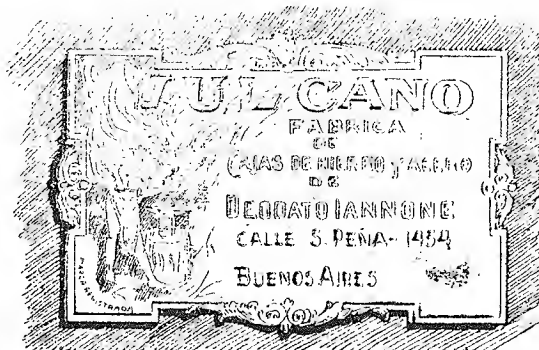 VULCANO
FABRICA
DE
CAJAS DE HIERRO y ACERO
DE
DEODATO IANNONE
CALLE S. PEÑA - 1454
BUENOS AIRES
MARCA REGISTRADA